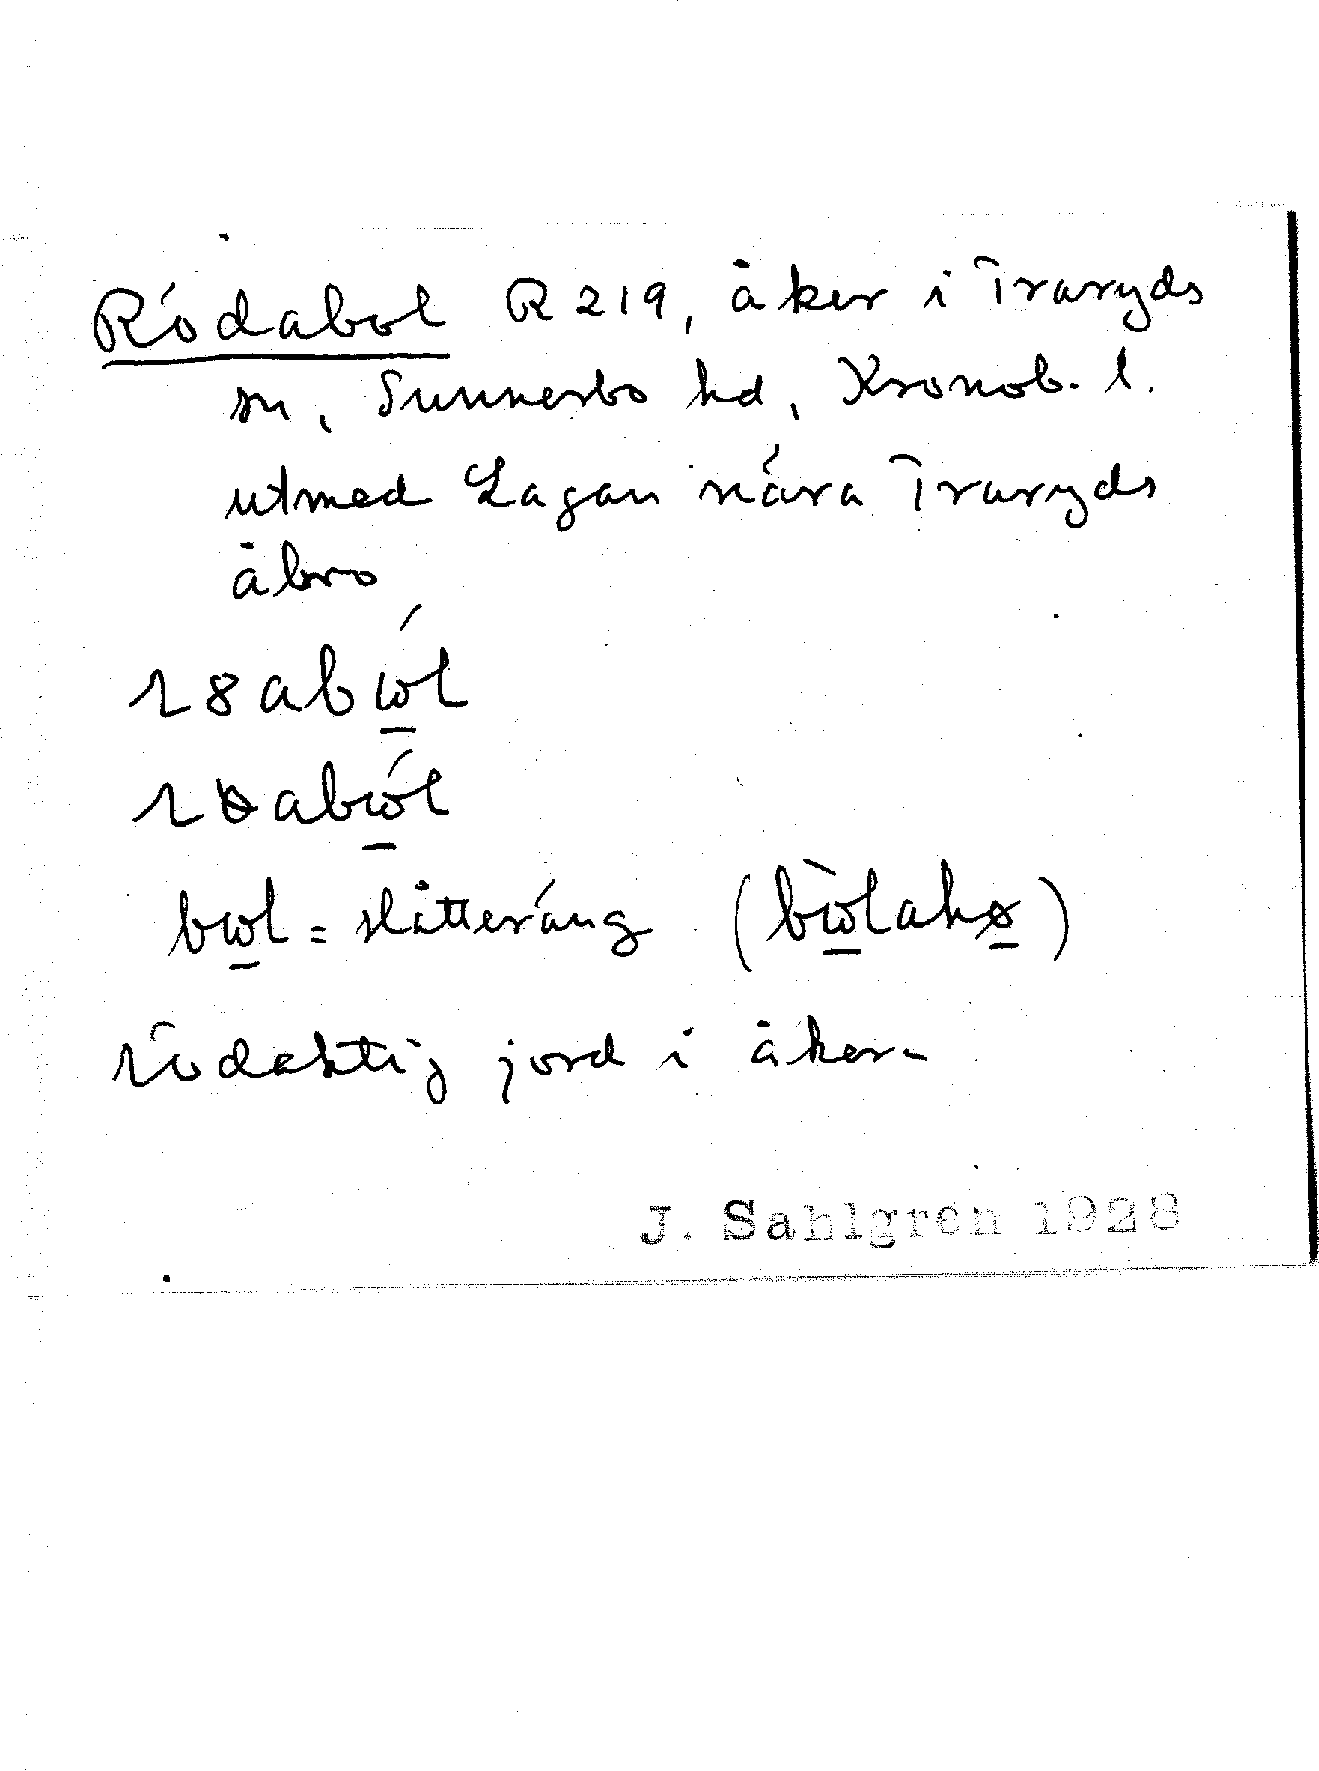 Rödabol R 219, åker i Traryds
sn, Sunnerbo hd, Kronob. l.
utmed Lagan nära Traryds
åbro
bωl = slåtteräng (bὼlahø)
rödaktig jord i åker-
J. Sahlgren 1928